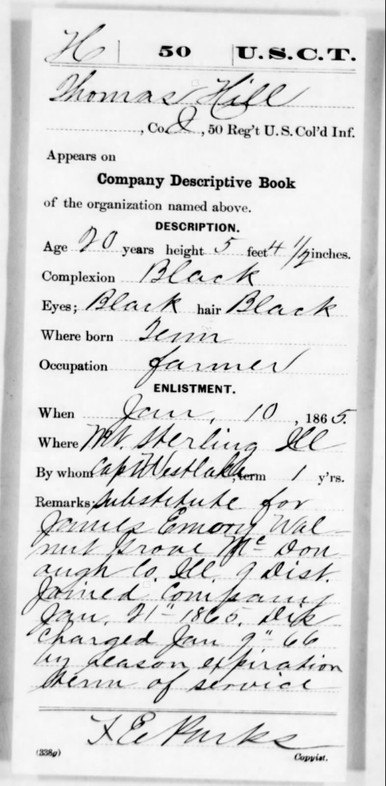 H | 50 | U.S.C.T.
Thomas Hill
, Co. I, 50 Reg't U.S. Col'd Inf.
Appears on
Company Descriptive Book
of the organization named above.
DESCRIPTION.
Age 20 years height 5 feet 4 1/2 inches.
Complexion Black
Eyes; Black hair Black
Where born Tenn
Occupation farmer
ENLISTMENT.
When Jan, 10, 1865.
Where Mt. Sterling Ill
By whom Capt Westlake, term 1 y'rs.
Remarks: Substitute for
James Emory Wal-
nut Grove Mc Don-
ough Co. Ill. 9 Dist.
Joined Company
Jan. 21" 1865. Dis-
charged Jan 9" 66
by reason expiration
term of service
F. E. Parks
(338g) Copyist.